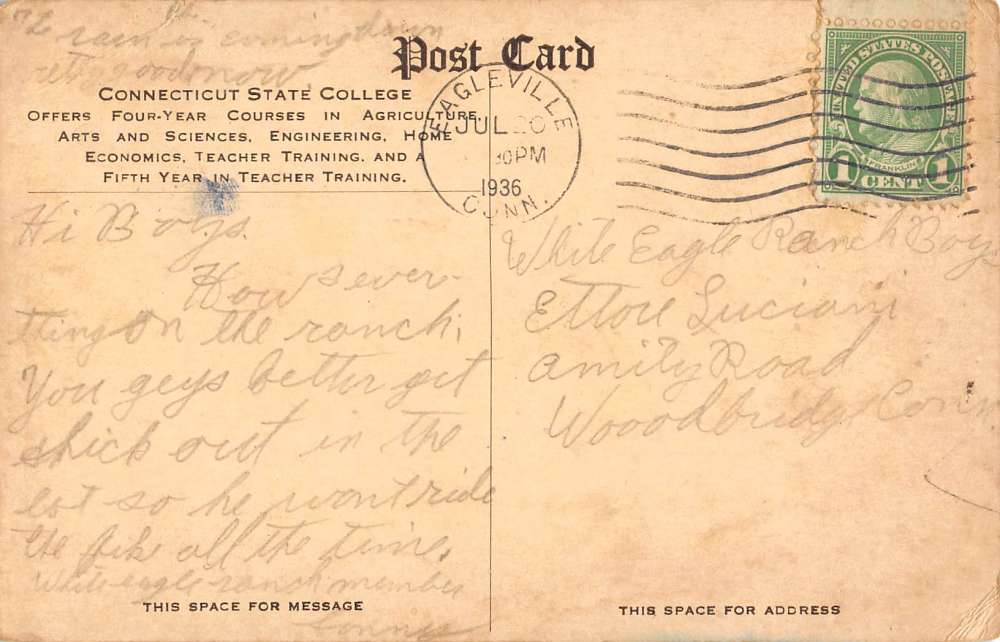 The rain is coming down
Post Card
CONNECTICUT STATE COLLEGE
OFFERS FOUR-YEAR COURSES IN AGRICULTURE,
ARTS AND SCIENCES, ENGINEERING, HOME
ECONOMICS, TEACHER TRAINING, AND A
FIFTH YEAR IN TEACHER TRAINING.
EAGLEVILLE
JUL 20
30PM
1936
CONN.
UNITED STATES POSTAGE
FRANKLIN
1 CENT 1
Hi Boys.
Hows ever-
thing on the ranch.
You geys better get
shick out in the
lot so he wont ride
the bike all the time.
White eagle ranch member
THIS SPACE FOR MESSAGE
White Eagle Ranch Boys
Ettore Luciani
Amity Road
Wooodbridge Conn
THIS SPACE FOR ADDRESS